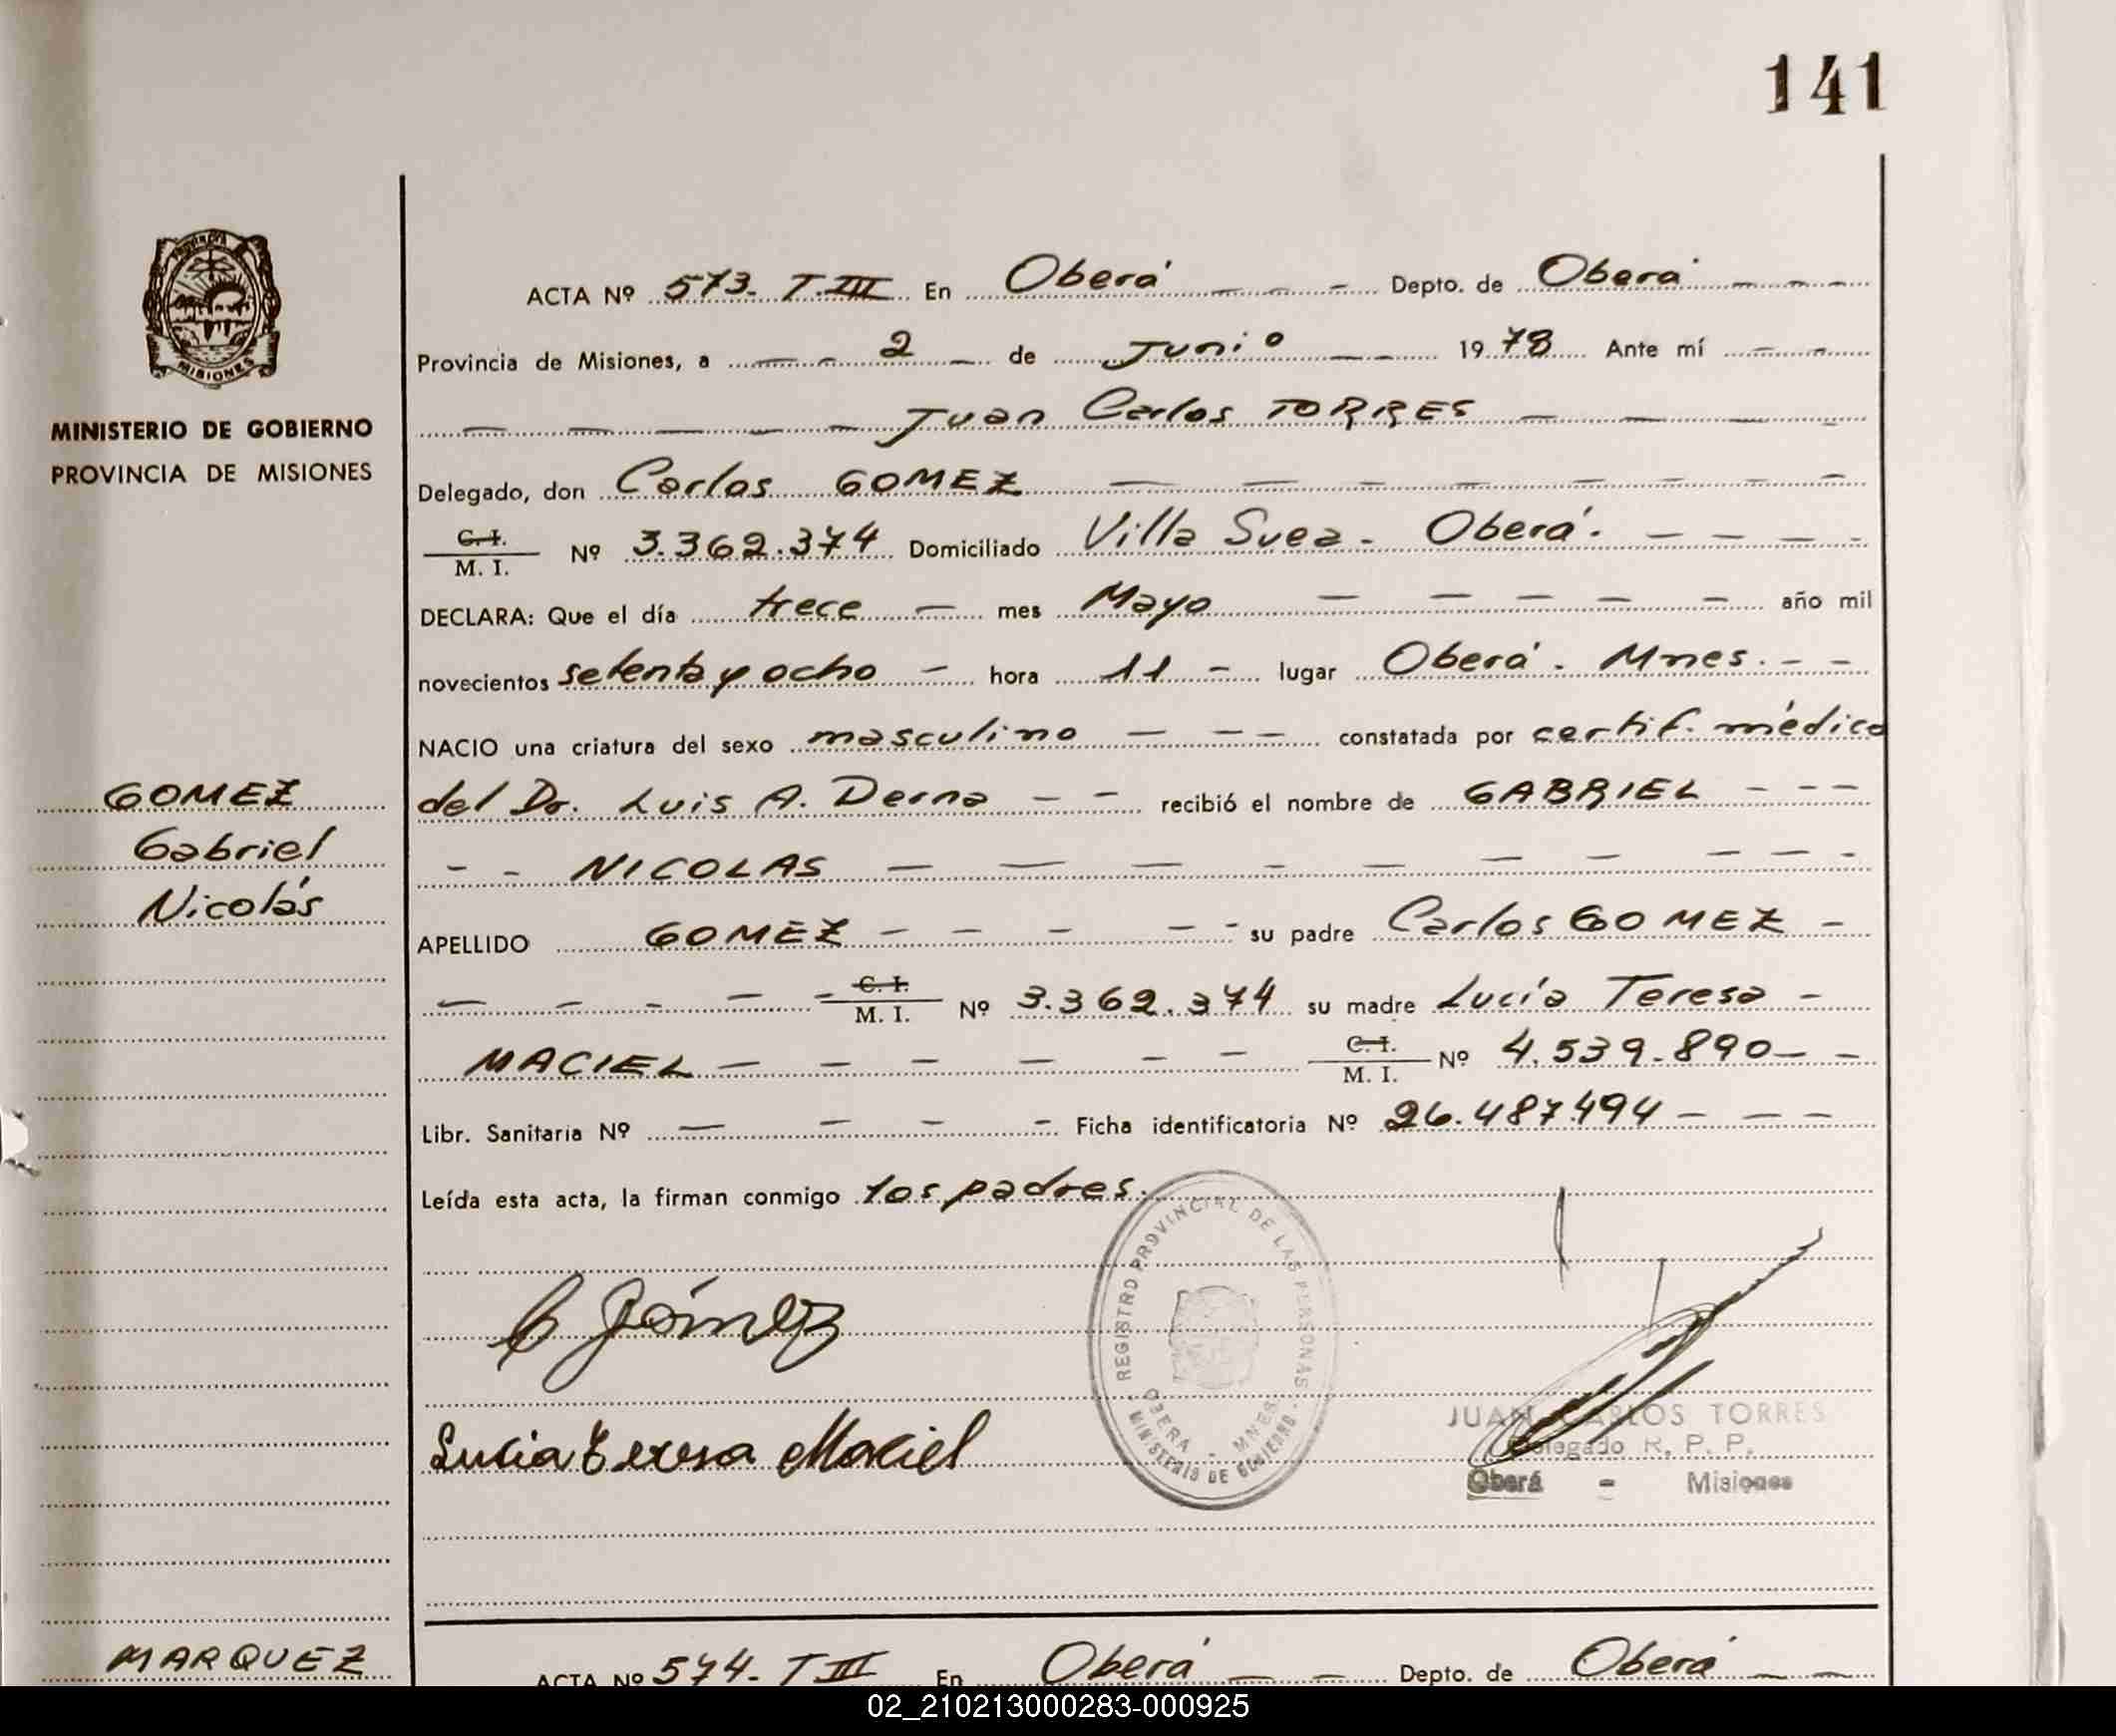 141
PROVINCIA
MISIONES
MINISTERIO DE GOBIERNO
PROVINCIA DE MISIONES
GOMEZ
Gabriel
Nicolás
MARQUEZ
ACTA Nº 573. T.III En Oberá - - - Depto. de Oberá - - -
Provincia de Misiones, a - - 2 - de Junio - - 1978 Ante mí - -
- - - - - Juan Carlos TORRES - - - -
Delegado, don Carlos GOMEZ - - - - - - - -
C. I.
M. I. Nº 3.362.374 Domiciliado Villa Suea - Oberá. - - - -
DECLARA: Que el día trece - mes Mayo - - - - - año mil
novecientos setenta y ocho - hora 11 - lugar Oberá. Mnes. - -
NACIO una criatura del sexo masculino - - - constatada por certif. médico
del Dr. Luis A. Derna - - recibió el nombre de GABRIEL - - -
- - NICOLAS - - - - - - - - - -
APELLIDO GOMEZ - - - - - su padre Carlos GOMEZ -
- - - - - C. I.
M. I. Nº 3.362.374 su madre Lucía Teresa -
MACIEL - - - - - - C. I.
M. I. Nº 4.539.890 - -
Libr. Sanitaria Nº - - - - Ficha identificatoria Nº 26.487.494 - - -
Leída esta acta, la firman conmigo los padres.
C Gómez
Lucia Teresa Maciel
REGISTRO PROVINCIAL DE LAS PERSONAS
OBERÁ - MNES.
MINISTERIO DE GOBIERNO
JUAN CARLOS TORRES
Delegado R. P. P.
Oberá - Misiones
ACTA Nº 574. T III En Oberá - - Depto. de Oberá - -
02_210213000283-000925